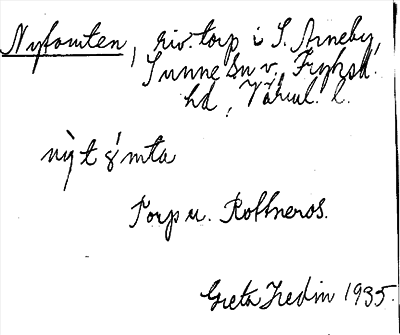 Nytomten, riv. torp i S. Arneby,
Sunne sn v. Fryksd.
hd, Värml. l.
nỳt ǫ́mta
Torp u. Rottneros.
Greta Hedin 1935.